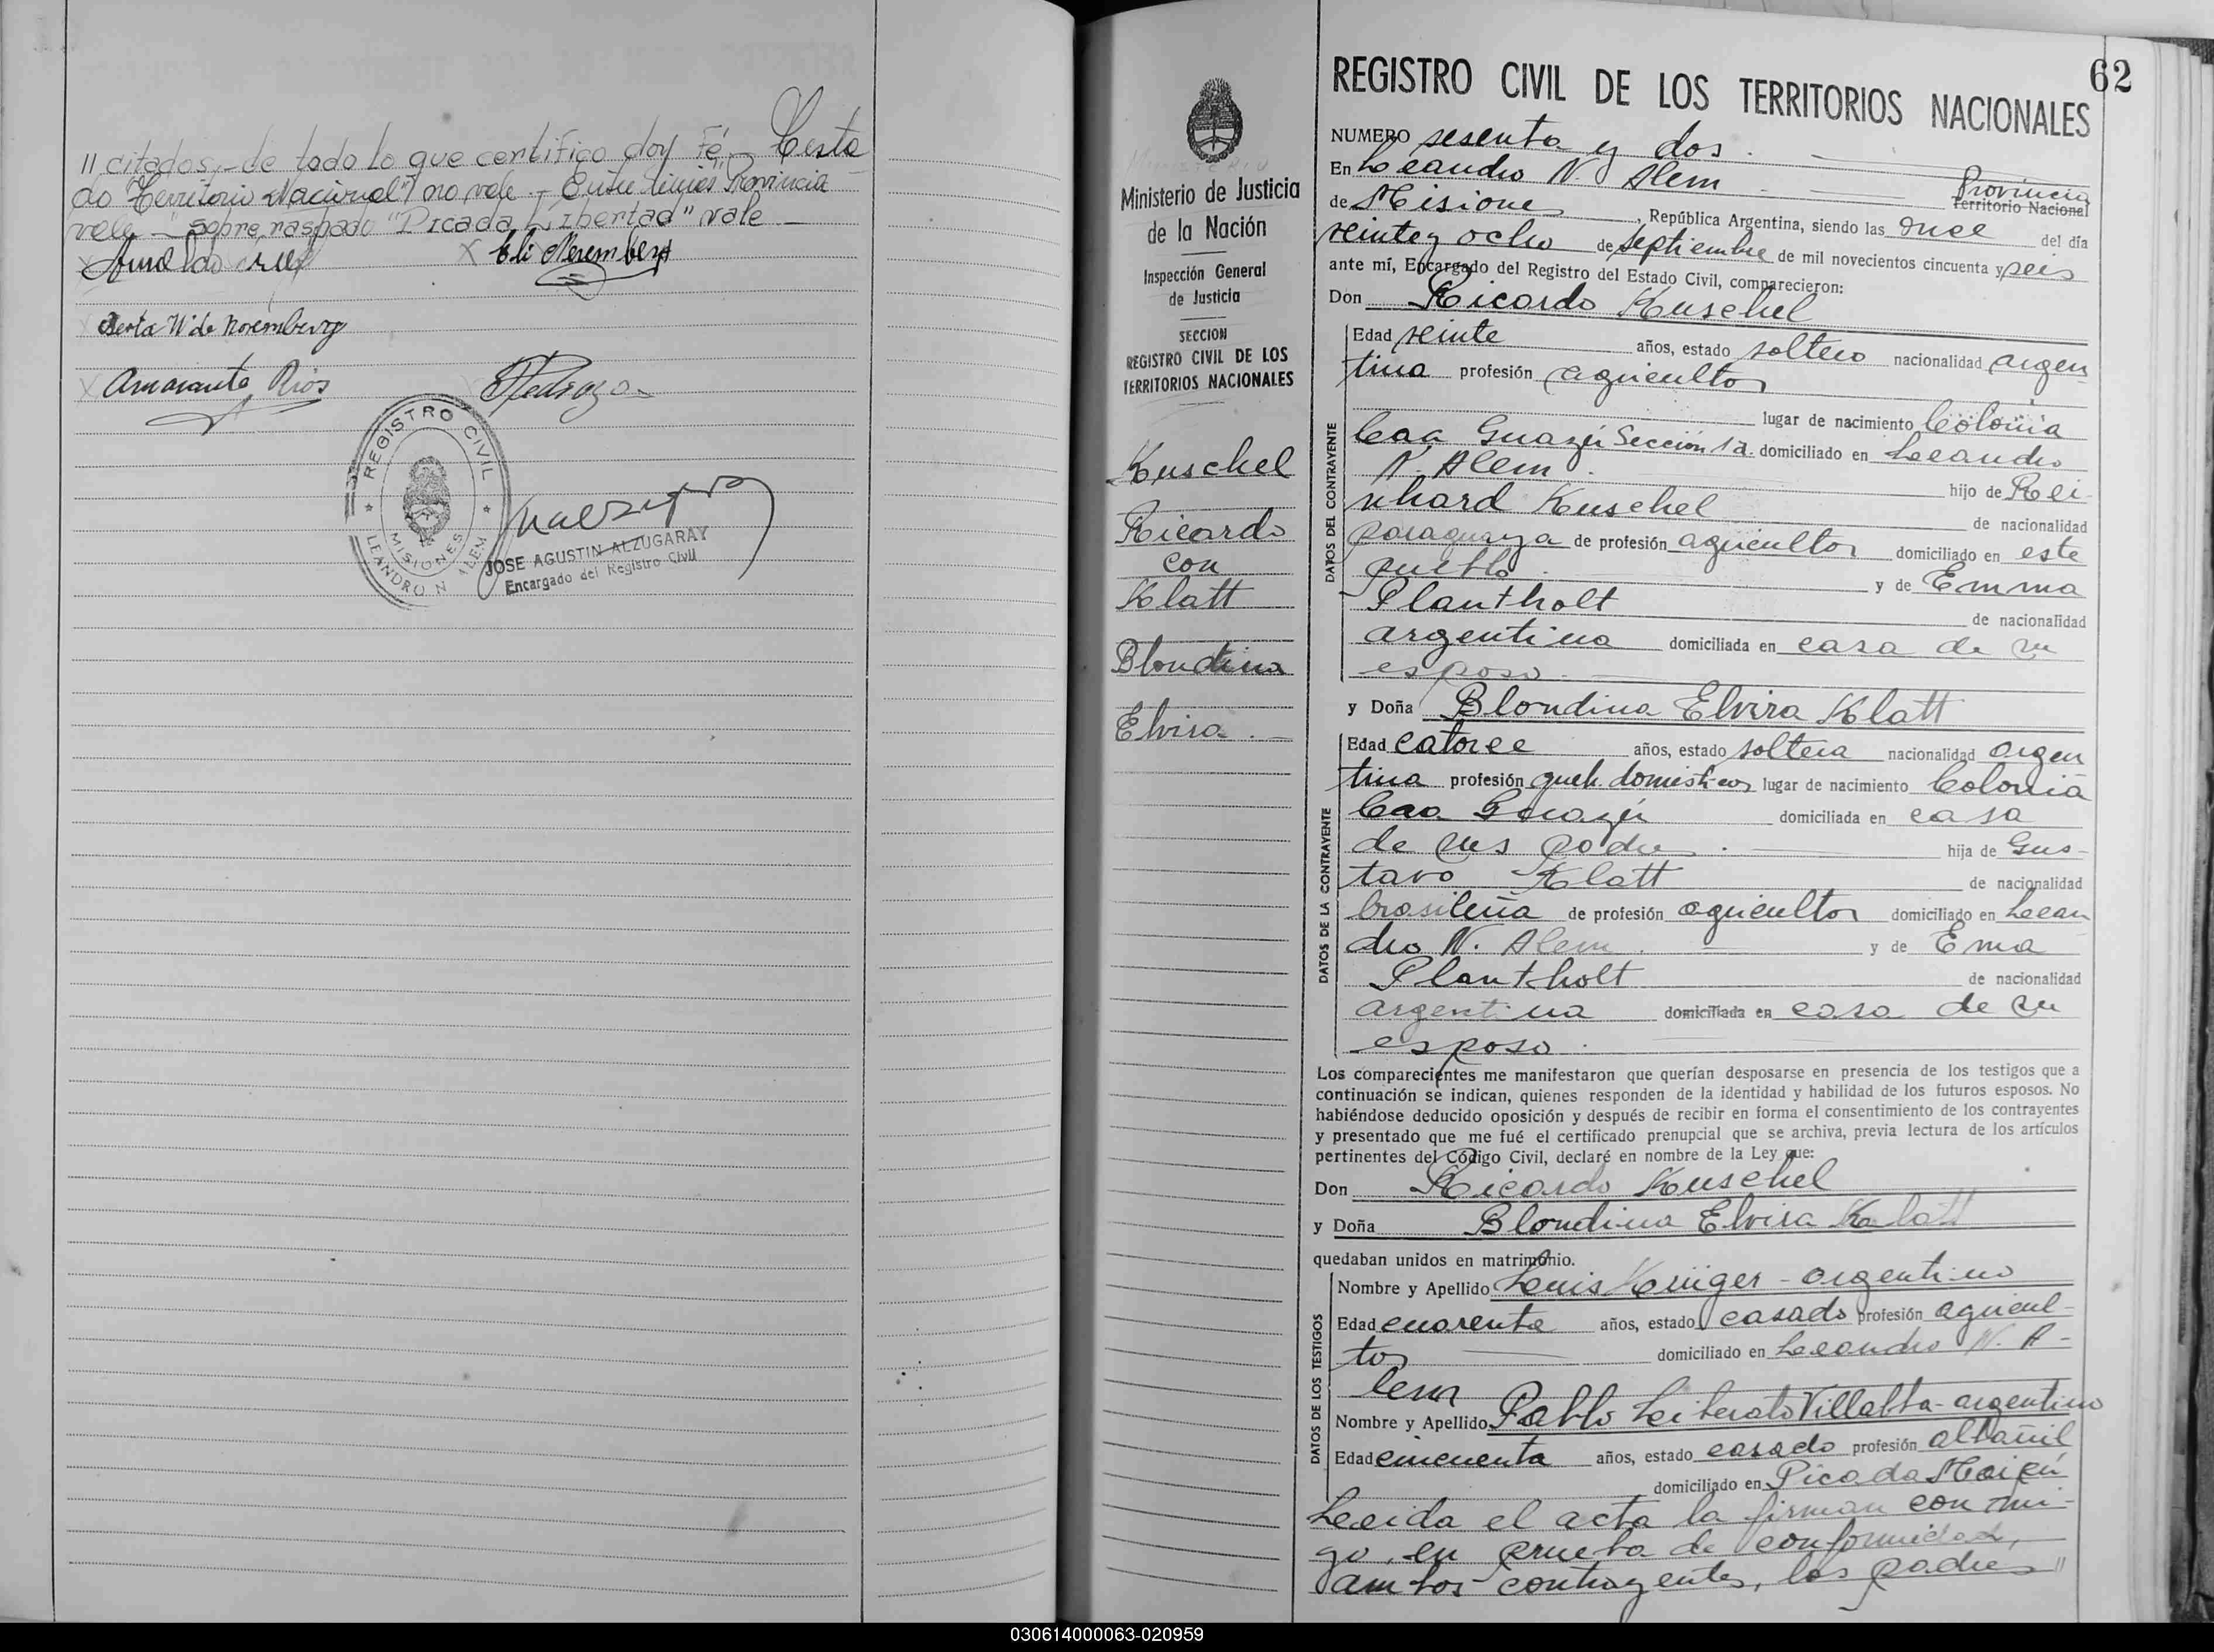 // citados,- de todo lo que certifico doy Fé,- Testa
do "Territorio Nacional" no vale.- Entre lineas "Provincia
vale - sobre raspado "Picada Libertad" vale —
Arnoldo
X Eli Neremberg
Berta W de Noremberg
X Amarante Rios
Pedrozo
REGISTRO CIVIL
MISIONES
LEANDRO N ALEM
JOSE AGUSTIN ALZUGARAY
Encargado del Registro Civil
62
Ministerio de Justicia
de la Nación
Inspección General
de Justicia
SECCION
REGISTRO CIVIL DE LOS
TERRITORIOS NACIONALES
Kuschel
Ricardo
con
Klatt
Blondina
Elvira.-
REGISTRO CIVIL DE LOS TERRITORIOS NACIONALES
NUMERO sesenta y dos.
En Leandro N Alem
Provincia
de Misiones Territorio Nacional
, República Argentina, siendo las once del día
veinte y ocho de septiembre de mil novecientos cincuenta y seis
ante mí, Encargado del Registro del Estado Civil, comparecieron:
Don Ricardo Kuschel
DATOS DEL CONTRAYENTE
Edad veinte años, estado soltero nacionalidad argen
tina profesión agricultor
lugar de nacimiento Colonia
Caa Guazú Sección 1a. domiciliado en Leandro
N. Alem.
hijo de Rei-
nhard Kuschel
de nacionalidad
paraguaya de profesión agricultor domiciliado en este
pueblo. y de Emma
Plantholt
de nacionalidad
argentina domiciliada en casa de su
esposo.
y Doña Blondina Elvira Klatt
DATOS DE LA CONTRAYENTE
Edad catorce años, estado soltera nacionalidad argen
tina profesión queh. domésticos lugar de nacimiento Colonia
Caa Guazú domiciliada en casa
de sus padres. hija de Gus-
tavo Klatt de nacionalidad
brasileña de profesión agricultor domiciliado en Lean
dro N. Alem. y de Ema
Plantholt de nacionalidad
argentina domiciliada en casa de su
esposo.
Los comparecientes me manifestaron que querían desposarse en presencia de los testigos que a
continuación se indican, quienes responden de la identidad y habilidad de los futuros esposos. No
habiéndose deducido oposición y después de recibir en forma el consentimiento de los contrayentes
y presentado que me fué el certificado prenupcial que se archiva, previa lectura de los artículos
pertinentes del Código Civil, declaré en nombre de la Ley que:
Don Ricardo Kuschel
y Doña Blondina Elvira Klatt
quedaban unidos en matrimonio.
DATOS DE LOS TESTIGOS
Nombre y Apellido Luis Krüger - argentino
Edad cuarenta años, estado casado profesión agricul-
tor domiciliado en Leandro N. A-
lem
Nombre y Apellido Pablo Liberato Villalba - argentino
Edad cincuenta años, estado casado profesión albañil
domiciliado en Picada Maipú
Leída el acta la firman con mi-
go, en prueba de conformidad,
ambos contrayentes, los padres //
030614000063-020959